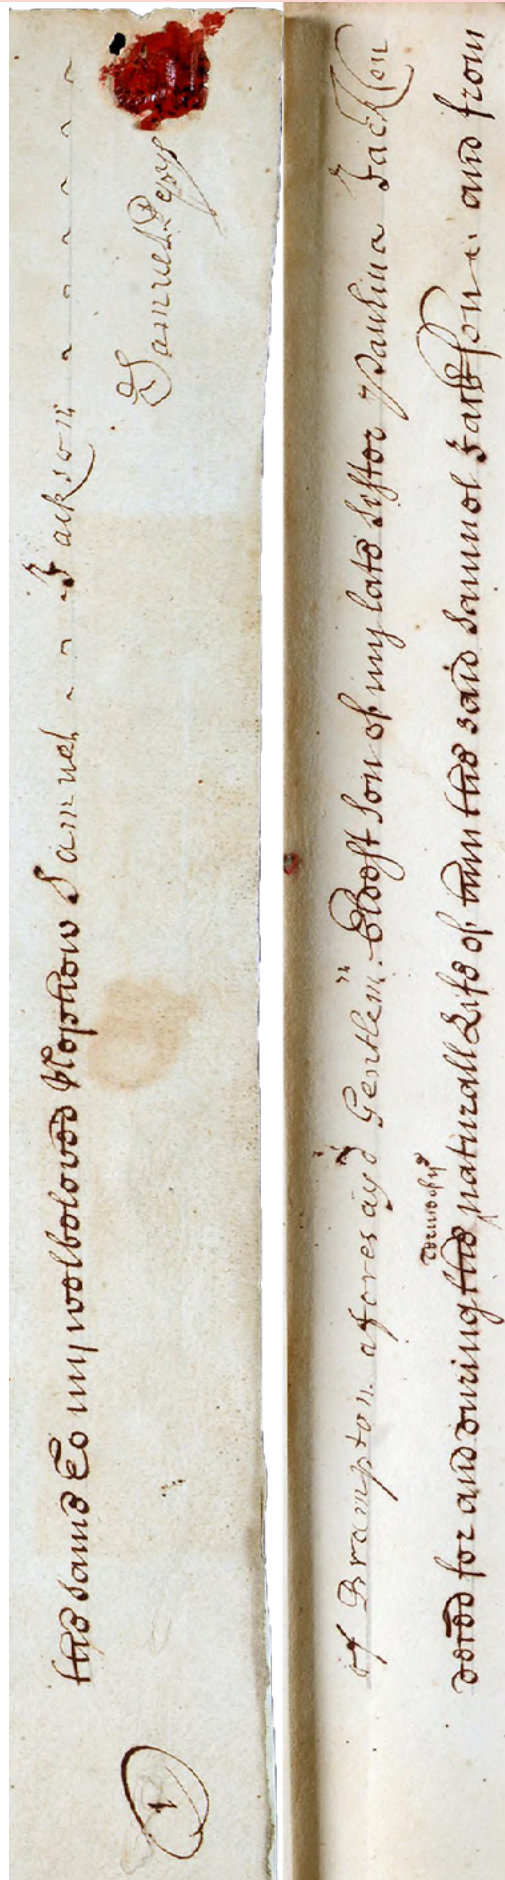 the same To my welbeloved Nephew Samuel Jackson
Samuel Pepys
1
of Brampton aforesayd Gentlem: Eldest son of my late Sister Paulina Jackson
terme of ye
for and during the naturall Life of him the said Samuel Jackson: and from